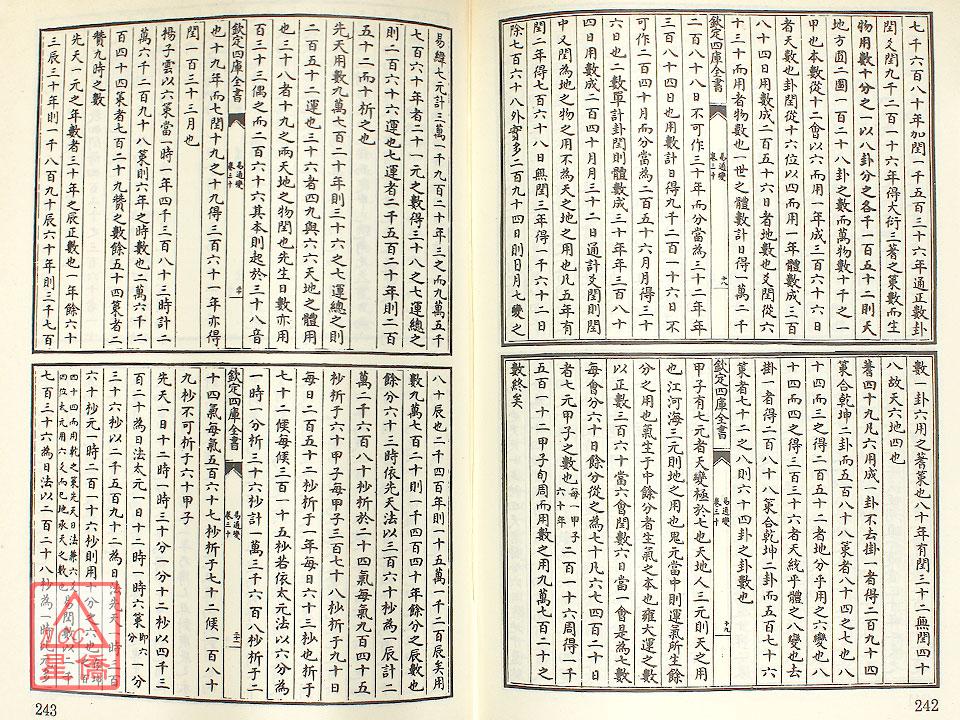 七千六百八十年加閏一千五百三十六年適正數卦
閏爻閏九千二百一十六年得大衍三蓍之策數而生
物用數十分之一以八卦分之各千一百五十二則天
地方圓二圖一百二十八卦之數而萬物數十千之一
甲也本數從十二會以六而用一年成三百六十六日
者天數也卦閏從十六位以四而用一年體數成三百
八十四日用數成二百五十六日者地數也爻閏從六
十三十而用者物數也一世之體數計日得一萬二千
欽定四庫全書
易通變
卷三十
十八
二百八十八日不可作三十年而分當為三十二年年
三百八十四日也用數計日得九千二百一十六日不
可作二百四十月而分當為二百五十六月月得三十
六日也二數單計卦閏則體數成三十年年三百八十
四日用數成二百四十月月三十二日通計爻閏則閏
中又閏為地之物之用不為天之地之用也凡五年有
閏二年得七百六十八日無閏三年得一千六十二日
除七百六十八外實多二百九十四日則日月七變之
數一卦六用之蓍策也八十年有閏三十二無閏四十
八故天六地四也
蓍四十九凡六用成一卦不去掛一者得二百九十四
策合乾坤二卦而五百八十八策者八十四之七也八
十四而三之得二百五十二者地分乎用之六變也八
十四而四之得三百三十六者天統乎體之八變也去
掛一者得二百八十八策合乾坤二卦而五百七十六
策者七十二之八則六十四卦之卦數也
欽定四庫全書
易通變
卷三十
十九
甲子有七元者天變極於七也天地人三元則天之用
也江河海三元則地之用也鬼元當中則運氣所生餘
分之用也氣生于中餘分者生氣之本也雍大運之數
以正數三百六十當六會閏數六日當一會是為七數
每會分六十日餘分從之為七十凡六七四百二十日
者七元甲子之數也每一甲子六十年二百一十六周得一千
五百一十二甲子旬周而用數之用九萬七百二十之
數終矣
242
易緯七元計三萬一千九百二十年三之而九萬五千
七百六十年者二十一元之數得三十八之七運總之
則二百六十六運也七運者二千五百二十年則二百
五十二而十析之也
先天用數九萬七百二十年則三十六之七運總之則
二百五十二運也三十六者四九與六六天地之體用
也三十八者十九之兩天地之物閏也先生日數亦用
百三十三偶之而二百六十六其本則起於三十八音
欽定四庫全書
易通變
卷三十
二十
也十九年而七閏十九之十九得三百六十一年亦得
閏一百三十三月也
揚子雲以六策當一時一年四千三百八十三時計二
萬六千二百九十八策則六年之時數也二萬六千二
百四十四策者七百二十九贊之數餘五十四策者二
贊九時之數
先天一元之年數者三十年之辰正數也一年餘六十
三辰三十年則一千八百九十辰六十年則三千七百
八十辰也二千四百年則十五萬一千二百辰矣用
數九萬七百二十則一千四百四十年餘分之辰數也
餘分六十三時依先天法以三百六十秒為一辰計二
萬二千六百八十秒析於二十四氣每氣九百四十五
秒析于六十甲子每甲子三百七十八秒析于九十日
每日二百五十二秒析于一年每日六十三秒也析于
七十二候每候三百一十五秒若依太元法以六分為
一時一分析三十六秒計一萬三千六百八秒析于二
欽定四庫全書
易通變
卷三十
二十一
十四氣每氣五百六十七秒析于七十二候一百八十
九秒不可析于六十甲子
先天一日十二時一時三十分一分十二秒以四千三
百二十為日法太元一日十二時一時六策即六分一分
三十六秒以二千五百九十二為日法先天一時三百
六十秒太元一時二百一十六秒則用十分之六也
243